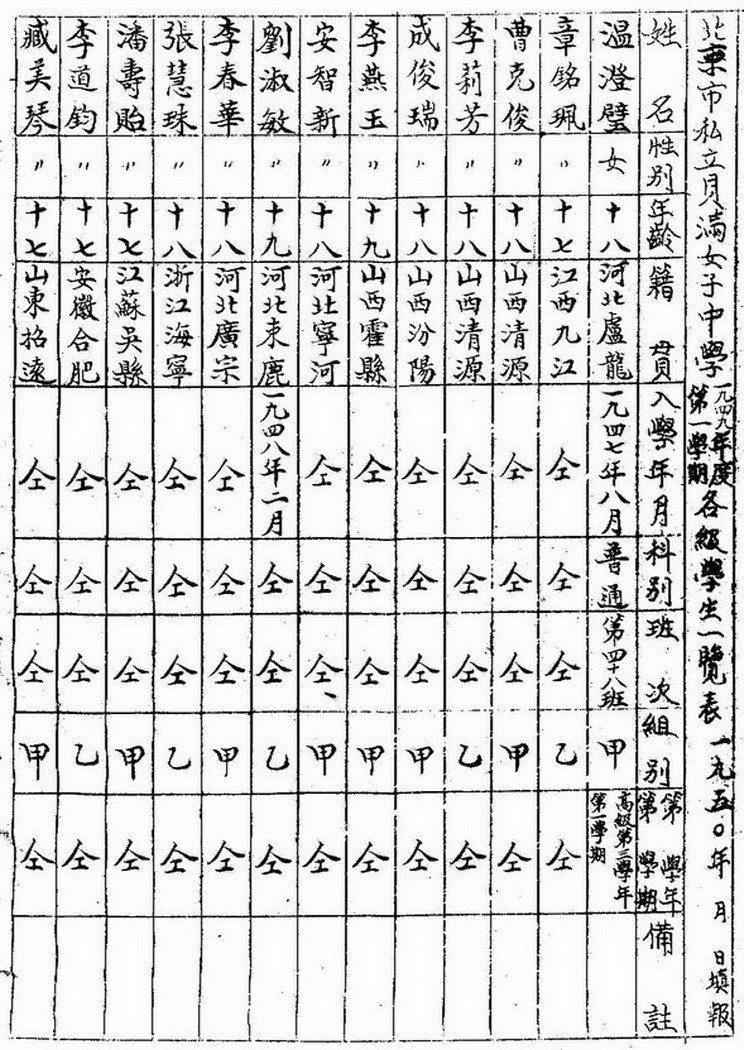 北京市私立貝滿女子中學一九四九年度第一學期各級學生一覽表 一九五〇年 月 日填報
姓名 性別 年齡 籍貫 入學年月 科別 班次 組別 第 學年 第 學期 備註
溫澄璧 女 十八 河北盧龍 一九四七年八月 普通 第四十八班 甲 高級第三學年 第一學期
章銘珮 〃 十七 江西九江 仝 仝 仝 乙 仝
曹克俊 〃 十八 山西清源 仝 仝 仝 甲 仝
李莉芳 〃 十八 山西清源 仝 仝 仝 乙 仝
成俊瑞 〃 十八 山西汾陽 仝 仝 仝 甲 仝
李燕玉 〃 十九 山西霍縣 仝 仝 仝 甲 仝
安智新 〃 十八 河北寧河 仝 仝 仝 甲 仝
劉淑敏 〃 十九 河北束鹿 一九四八年二月 仝 仝 乙 仝
李春華 〃 十八 河北廣宗 仝 仝 仝 甲 仝
張慧珠 〃 十八 浙江海寧 仝 仝 仝 乙 仝
潘壽貽 〃 十七 江蘇吳縣 仝 仝 仝 甲 仝
李道鈞 〃 十七 安徽合肥 仝 仝 仝 乙 仝
臧美琴 〃 十七 山東招遠 仝 仝 仝 甲 仝